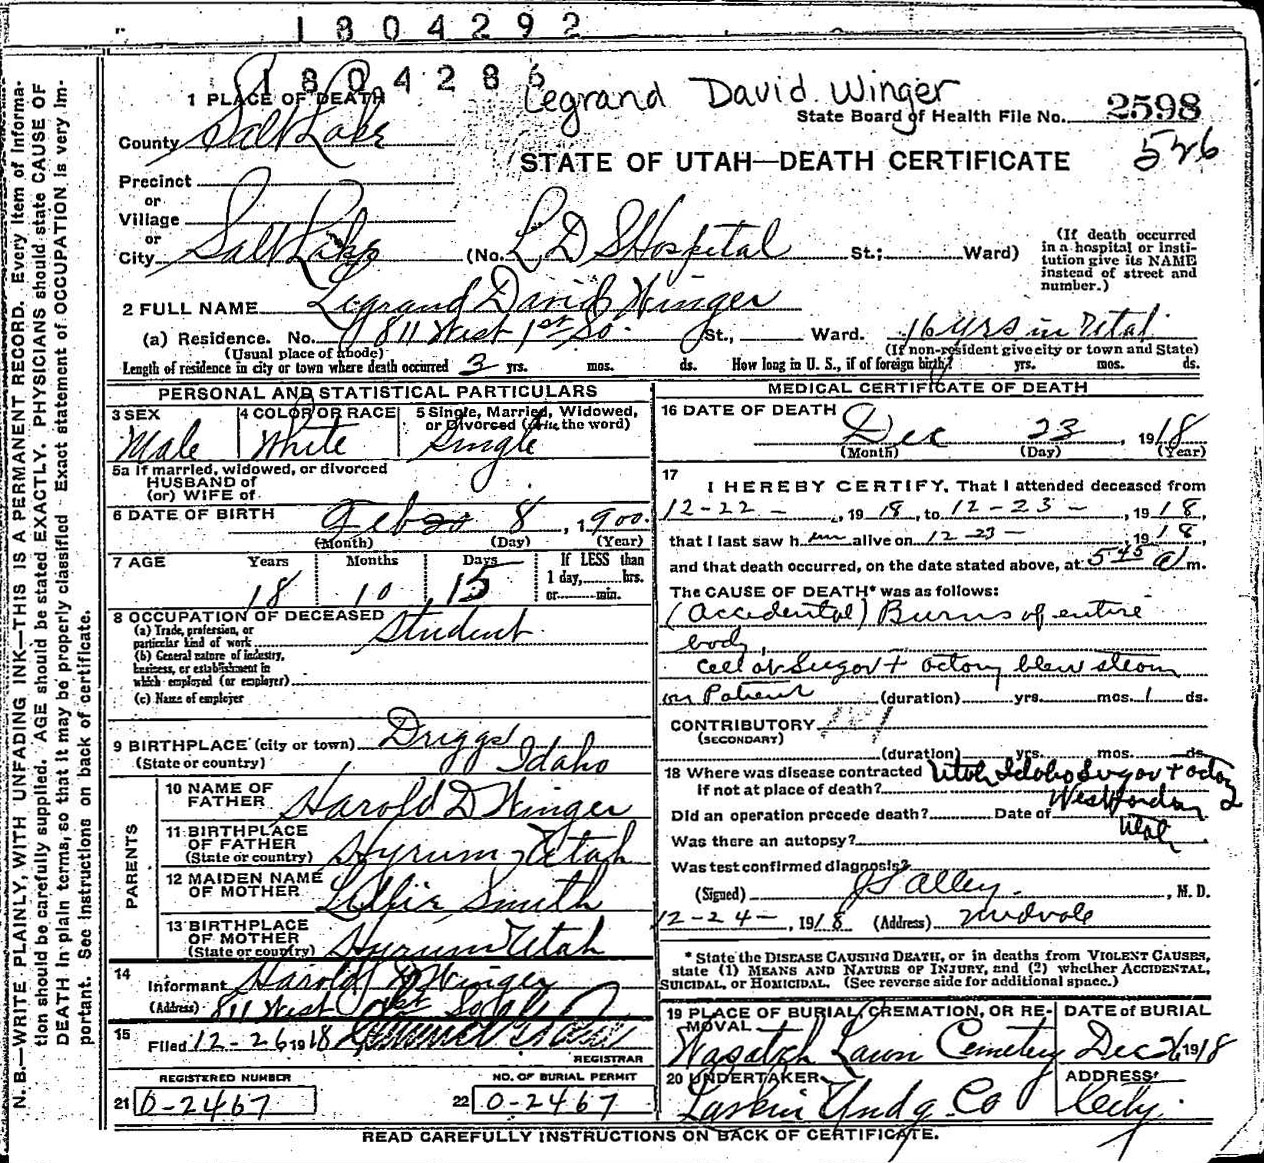 1804292
1804286
Legrand David Winger
1 PLACE OF DEATH
State Board of Health File No. 2598
526
County Salt Lake
STATE OF UTAH—DEATH CERTIFICATE
Precinct
or
Village
or
City Salt Lake (No. L D S Hospital St.; Ward)
(If death occurred in a hospital or insti-
tution give its NAME
instead of street and
number.)
2 FULL NAME Legrand David Winger
(a) Residence. No. 811 West 1st So. St., Ward. 16 yrs in Utah
(Usual place of abode) (If non-resident give city or town and State)
Length of residence in city or town where death occurred 3 yrs. mos. ds. How long in U. S., if of foreign birth? yrs. mos. ds.
PERSONAL AND STATISTICAL PARTICULARS
3 SEX Male
4 COLOR OR RACE White
5 Single, Married, Widowed,
or Divorced (write the word)
Single
5a If married, widowed, or divorced
HUSBAND of
(or) WIFE of
6 DATE OF BIRTH Feb 8, 1900.
(Month) (Day) (Year)
7 AGE Years Months Days If LESS than
1 day, hrs.
or min.
18 10 15
8 OCCUPATION OF DECEASED
(a) Trade, profession, or
particular kind of work Student
(b) General nature of industry,
business, or establishment in
which employed (or employer)
(c) Name of employer
9 BIRTHPLACE (city or town) Driggs
(State or country) Idaho
PARENTS
10 NAME OF
FATHER Harold D Winger
11 BIRTHPLACE
OF FATHER
(State or country) Hyrum Utah
12 MAIDEN NAME
OF MOTHER Smith
13 BIRTHPLACE
OF MOTHER
(State or country) Hyrum Utah
14
Informant Harold D Winger
(Address) 811 West 1st South
15
Filed 12-26 1918
REGISTRAR
REGISTERED NUMBER
21 0-2467
NO. OF BURIAL PERMIT
22 0-2467
MEDICAL CERTIFICATE OF DEATH
16 DATE OF DEATH
Dec 23, 1918
(Month) (Day) (Year)
17
I HEREBY CERTIFY, That I attended deceased from
12-22-, 1918, to 12-23-, 1918,
that I last saw him alive on 12-23- 1918,
and that death occurred, on the date stated above, at 5 45 a m.
The CAUSE OF DEATH* was as follows:
(Accidental) Burns of entire
body,
Cell at Sugar Factory blew steam
on Patient (duration) yrs. mos. 1 ds.
CONTRIBUTORY
(SECONDARY)
(duration) yrs. mos. ds.
18 Where was disease contracted
if not at place of death? Utah Idaho Sugar Factory
West Jordan
Utah
Did an operation precede death? Date of
Was there an autopsy?
Was test confirmed diagnosis?
(Signed) Alley, M. D.
12-24-, 1918 (Address) Midvale
* State the DISEASE CAUSING DEATH, or in deaths from VIOLENT CAUSES,
state (1) MEANS AND NATURE OF INJURY, and (2) whether ACCIDENTAL,
SUICIDAL, or HOMICIDAL. (See reverse side for additional space.)
19 PLACE OF BURIAL, CREMATION, OR RE-
MOVAL
Wasatch Lawn Cemetery
DATE of BURIAL
Dec 26 1918
20 UNDERTAKER
Larkin Undg Co
ADDRESS
City.
READ CAREFULLY INSTRUCTIONS ON BACK OF CERTIFICATE.
N. B.—WRITE PLAINLY, WITH UNFADING INK—THIS IS A PERMANENT RECORD. Every item of Informa-
tion should be carefully supplied. AGE should be stated EXACTLY. PHYSICIANS should state CAUSE OF
DEATH in plain terms, so that it may be properly classified. Exact statement of OCCUPATION is very Im-
portant. See instructions on back of certificate.